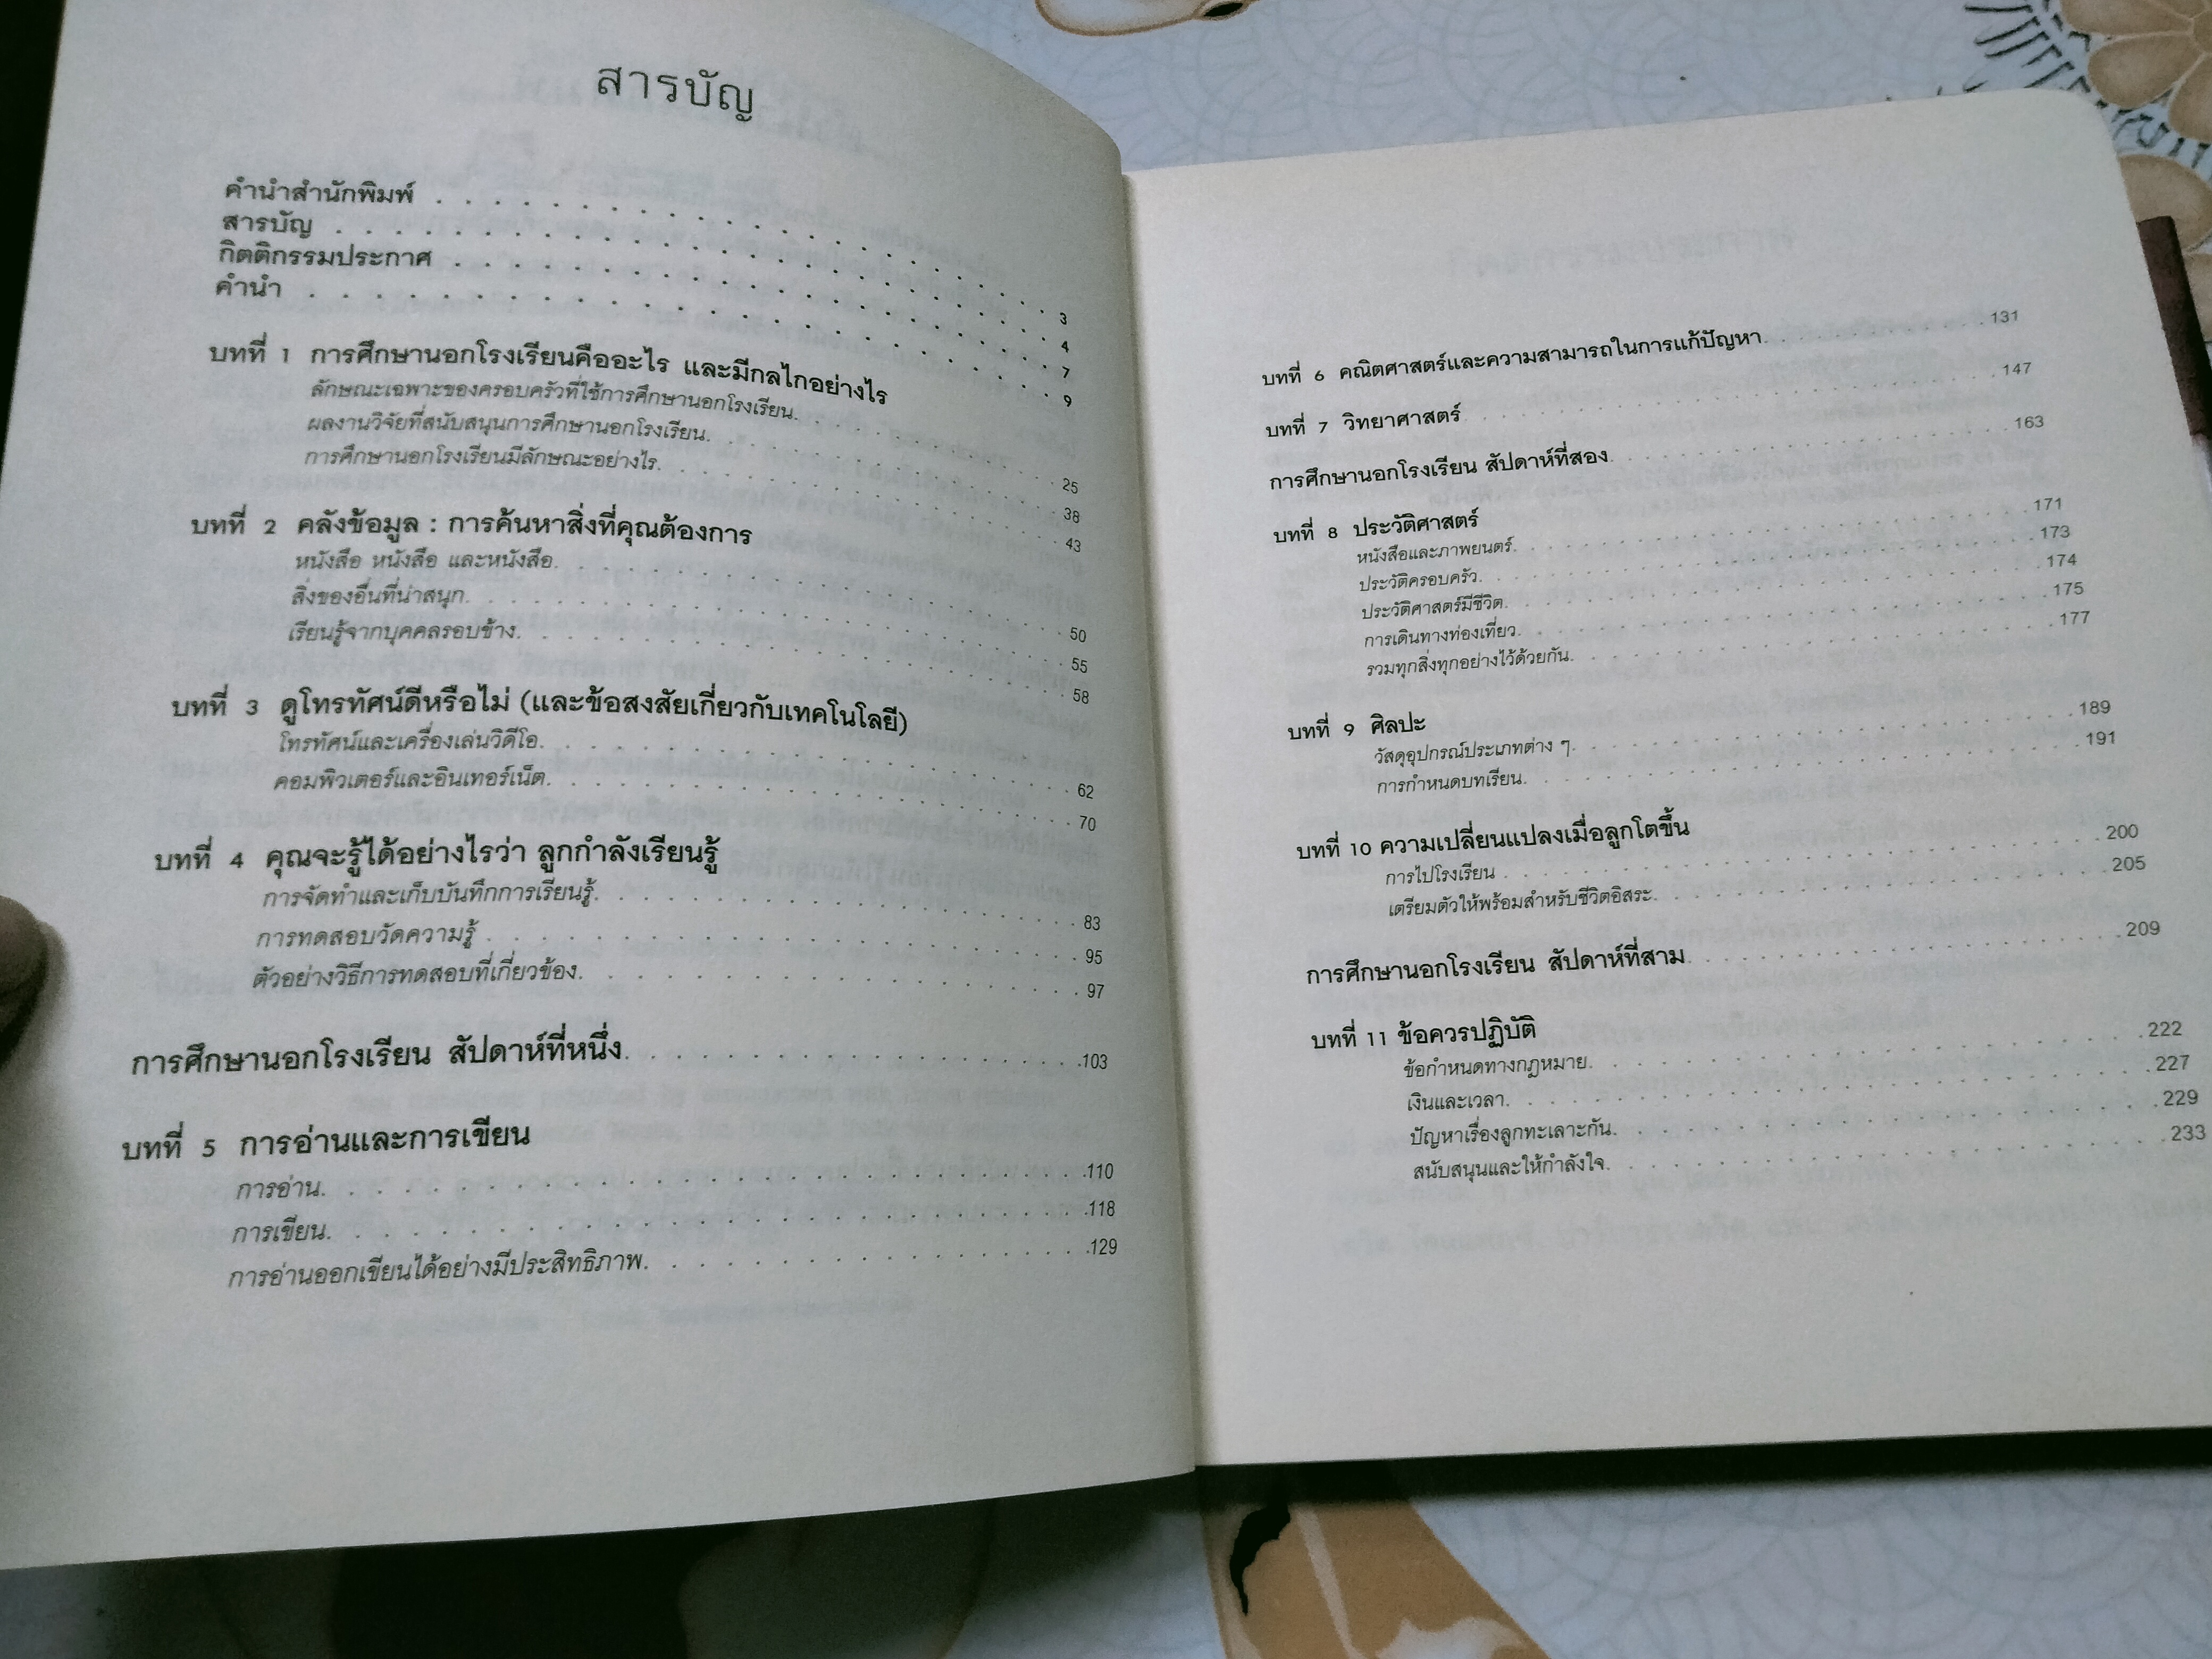 สารบัญ
คำนำสำนักพิมพ์ . . . . . 3
สารบัญ . . . . . 4
กิตติกรรมประกาศ . . . . . 7
คำนำ . . . . . 9
บทที่ 1 การศึกษานอกโรงเรียนคืออะไร และมีกลไกอย่างไร
ลักษณะเฉพาะของครอบครัวที่ใช้การศึกษานอกโรงเรียน. . . . . 25
ผลงานวิจัยที่สนับสนุนการศึกษานอกโรงเรียน. . . . . 38
การศึกษานอกโรงเรียนมีลักษณะอย่างไร. . . . . 43
บทที่ 2 คลังข้อมูล : การค้นหาสิ่งที่คุณต้องการ
หนังสือ หนังสือ และหนังสือ. . . . . 50
สิ่งของอื่นที่น่าสนุก. . . . . 55
เรียนรู้จากบุคคลรอบข้าง. . . . . 58
บทที่ 3 ดูโทรทัศน์ดีหรือไม่ (และข้อสงสัยเกี่ยวกับเทคโนโลยี)
โทรทัศน์และเครื่องเล่นวิดีโอ. . . . . 62
คอมพิวเตอร์และอินเทอร์เน็ต. . . . . 70
บทที่ 4 คุณจะรู้ได้อย่างไรว่า ลูกกำลังเรียนรู้
การจัดทำและเก็บบันทึกการเรียนรู้. . . . . 83
การทดสอบวัดความรู้ . . . . . 95
ตัวอย่างวิธีการทดสอบที่เกี่ยวข้อง. . . . . 97
การศึกษานอกโรงเรียน สัปดาห์ที่หนึ่ง. . . . . 103
บทที่ 5 การอ่านและการเขียน
การอ่าน. . . . . 110
การเขียน. . . . . 118
การอ่านออกเขียนได้อย่างมีประสิทธิภาพ. . . . . 129
บทที่ 6 คณิตศาสตร์และความสามารถในการแก้ปัญหา. . . . . 131
บทที่ 7 วิทยาศาสตร์ . . . . . 147
การศึกษานอกโรงเรียน สัปดาห์ที่สอง. . . . . 163
บทที่ 8 ประวัติศาสตร์
หนังสือและภาพยนตร์. . . . . 171
ประวัติครอบครัว. . . . . 173
ประวัติศาสตร์มีชีวิต. . . . . 174
การเดินทางท่องเที่ยว. . . . . 175
รวมทุกสิ่งทุกอย่างไว้ด้วยกัน. . . . . 177
บทที่ 9 ศิลปะ
วัสดุอุปกรณ์ประเภทต่าง ๆ. . . . . 189
การกำหนดบทเรียน. . . . . 191
บทที่ 10 ความเปลี่ยนแปลงเมื่อลูกโตขึ้น
การไปโรงเรียน . . . . . 200
เตรียมตัวให้พร้อมสำหรับชีวิตอิสระ. . . . . 205
การศึกษานอกโรงเรียน สัปดาห์ที่สาม. . . . . 209
บทที่ 11 ข้อควรปฏิบัติ
ข้อกำหนดทางกฎหมาย. . . . . 222
เงินและเวลา. . . . . 227
ปัญหาเรื่องลูกทะเลาะกัน. . . . . 229
สนับสนุนและให้กำลังใจ. . . . . 233